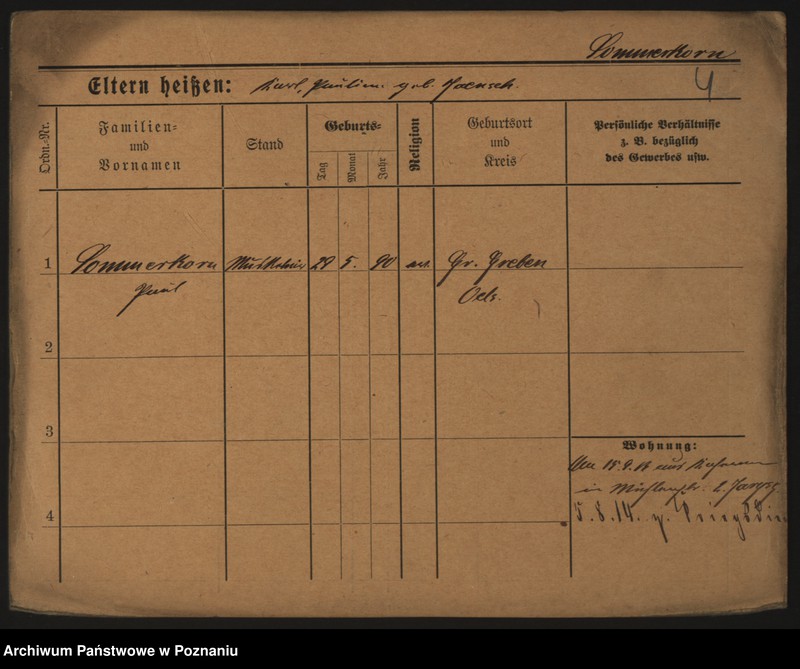 Sommerkorn
4
Eltern heißen: Karl, Paulin. geb.
Ordn.-Nr.
Familien-
und
Vornamen
Stand
Geburts-
Tag
Monat
Jahr
Religion
Geburtsort
und
Kreis
Persönliche Verhältnisse
z. B. bezüglich
des Gewerbes usw.
1 Sommerkorn Musketier 29 5. 90 Gr. Greben
Paul Oels.
2
3
Wohnung:
aus
in
4
5.8.14.
Archiwum Państwowe w Poznaniu